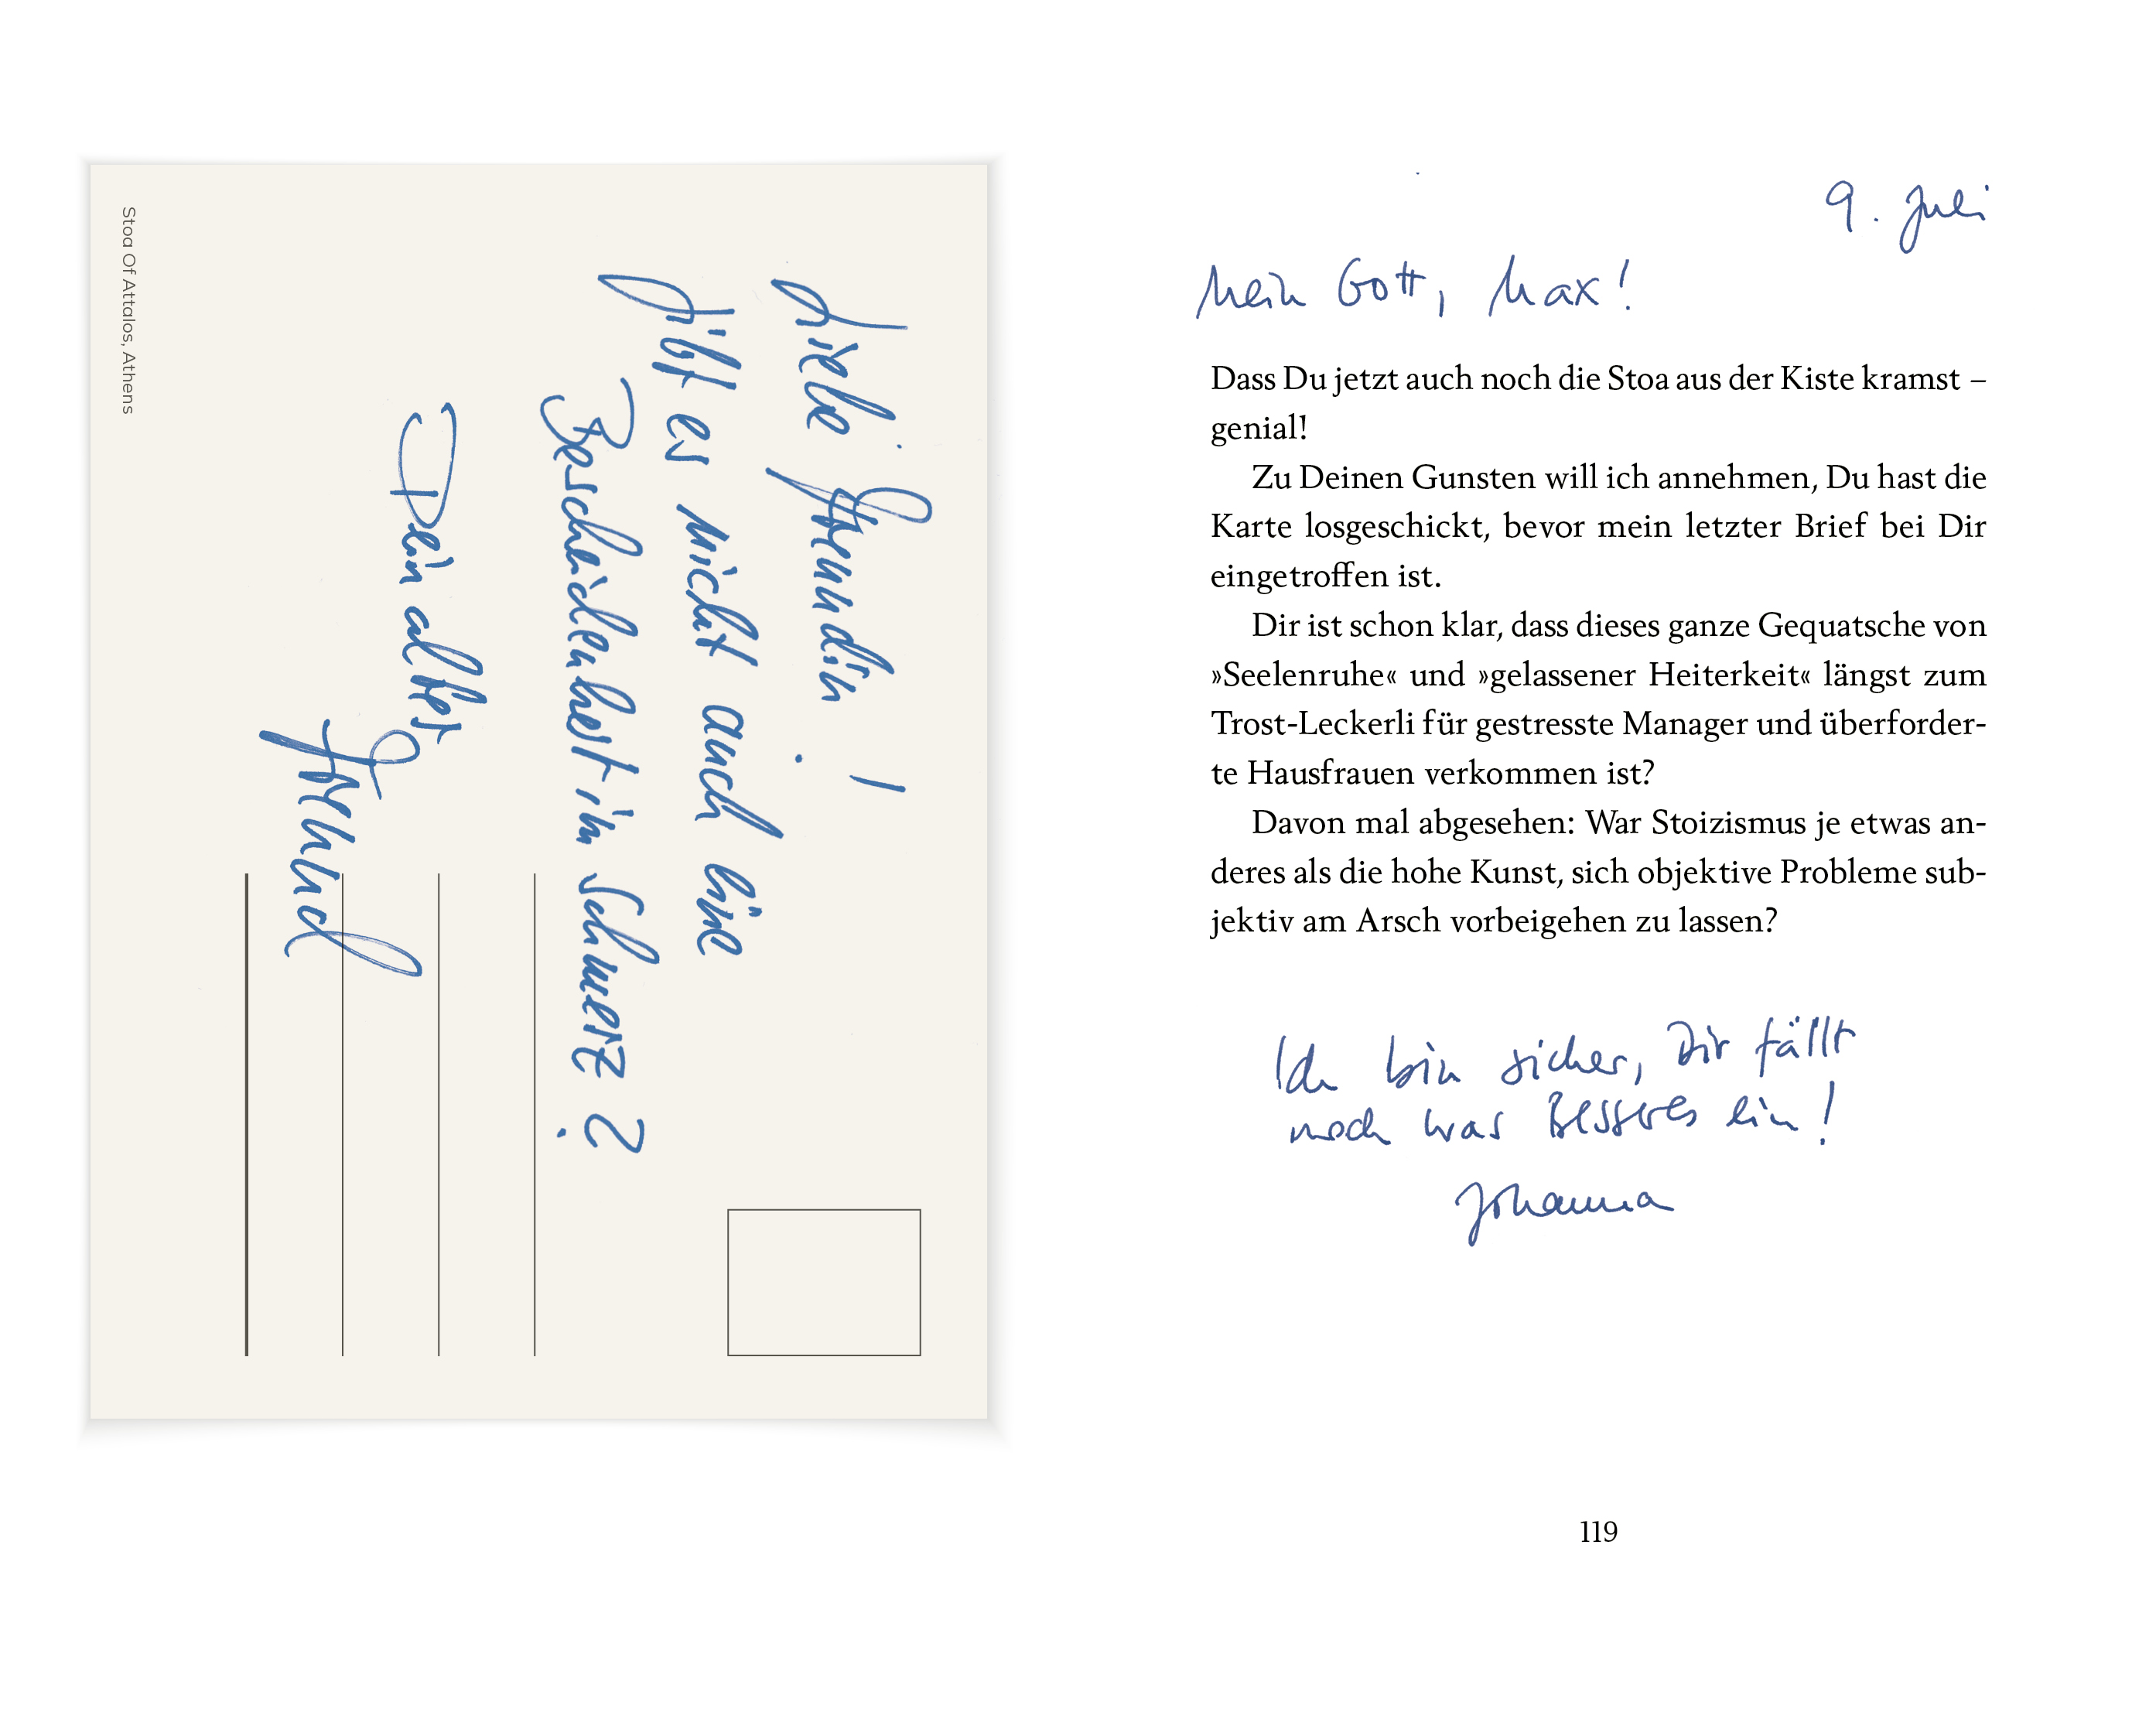 Stoa Of Attalos, Athens
Liebe Freundin!
Gibt es nicht auch eine
Bescheidenheit im Schmerz?
Dein alter
Freund
9. Juli
Mein Gott, Max!
Dass Du jetzt auch noch die Stoa aus der Kiste kramst –
genial!
Zu Deinen Gunsten will ich annehmen, Du hast die
Karte losgeschickt, bevor mein letzter Brief bei Dir
eingetroffen ist.
Dir ist schon klar, dass dieses ganze Gequatsche von
»Seelenruhe« und »gelassener Heiterkeit« längst zum
Trost-Leckerli für gestresste Manager und überforder-
te Hausfrauen verkommen ist?
Davon mal abgesehen: War Stoizismus je etwas an-
deres als die hohe Kunst, sich objektive Probleme sub-
jektiv am Arsch vorbeigehen zu lassen?
Ich bin sicher, Dir fällt
noch was Besseres ein!
Johanna
119